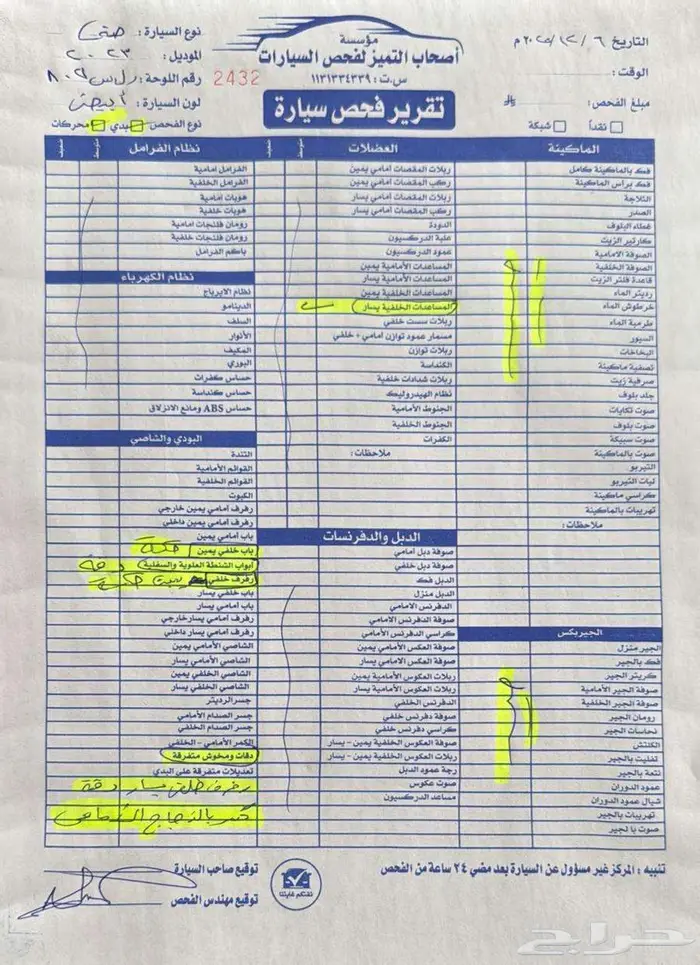 التاريخ ٦ / ١٢ / ٢٠٢٥ م
الوقت :
مبلغ الفحص :
نقداً شبكة
مؤسسة
أصحاب التميز لفحص السيارات
س.ت : ١١٣١٣٣٤٣٣٩
2432
تقرير فحص سيارة
نوع السيارة :
الموديل : ٢٠٢٣
رقم اللوحة :
لون السيارة : أبيض
نوع الفحص بدي محركات
الماكينة
فك بالماكينة كامل
فك برأس الماكينة
الثلاجة
الصدر
غطاء البلوف
كارتير الزيت
الصوفة الامامية
الصوفة الخلفية
قاعدة فلتر الزيت
رديتر الماء
خرطوش الماء
طرمبة الماء
السيور
البخاخات
تصفية ماكينة
صرفية زيت
جلد بلوف
صوت تكايات
صوت بلوف
صوت سبيكة
صوت بالماكينة
التيربو
ليات التيربو
كراسي ماكينة
تهريبات بالماكينة
ملاحظات :
الجيربكس
الجير منزل
فك بالجير
كريتر الجير
صوفة الجير الأمامية
صوفة الجير الخلفية
رومان الجير
نحاسات الجير
الكلتش
تفليت بالجير
نتعة بالجير
عمود الدوران
شيال عمود الدوران
تهريبات بالجير
صوت بالجير
العضلات
متوسط
ضعيف
ربلات المقصات امامي يمين
ركب المقصات امامي يمين
ربلات المقصات امامي يسار
ركب المقصات امامي يسار
الدودة
علبة الدركسيون
عمود الدركسيون
المساعدات الأمامية يمين
المساعدات الأمامية يسار
المساعدات الخلفية يمين
المساعدات الخلفية يسار
ربلات سست خلفي
مسمار عمود توازن امامي + خلفي
ربلات توازن
الكنداسة
ربلات شدادات خلفية
نظام الهيدروليك
الجنوط الأمامية
الجنوط الخلفية
الكفرات
ملاحظات :
الدبل والدفرنسات
صوفة دبل امامي
صوفة دبل خلفي
الدبل فك
الدبل منزل
الدفرنس الامامي
صوفة الدفرنس الامامي
كراسي الدفرنس الأمامي
صوفة العكس الأمامي يمين
صوفة العكس الامامي يسار
ربلات العكوس الأمامية يمين
ربلات العكوس الأمامية يسار
الدفرنس الخلفي
صوفة دفرنس خلفي
كراسي دفرنس خلفي
صوفة العكوس الخلفية يمين - يسار
ربلات العكوس الخلفية يمين - يسار
رجة عمود الدبل
صوت عكوس
مساعد الدركسيون
نظام الفرامل
متوسط
ضعيف
الفرامل امامية
الفرامل الخلفية
هوبات امامية
هوبات خلفية
رومان فلنجات امامية
رومان فلنجات خلفية
باكم الفرامل
نظام الكهرباء
نظام الايرباج
الدينامو
السلف
الأنوار
المكيف
البوري
حساس كفرات
حساس كنداسة
حساس ABS ومانع الانزلاق
البودي والشاصي
التندة
القوائم الأمامية
القوائم الخلفية
الكبوت
رفرف أمامي يمين خارجي
رفرف أمامي يمين داخلي
باب امامي يمين
باب خلفي يمين حكة
أبواب الشنطة العلوية والسفلية دقة
رفرف خلفي
باب خلفي يسار
باب امامي يسار
رفرف أمامي يسار خارجي
رفرف امامي يسار داخلي
الشاصي الأمامي يمين
الشاصي الأمامي يسار
الشاصي الخلفي يمين
الشاصي الخلفي يسار
جسر الرديتر
جسر الصدام الأمامي
جسر الصدام الخلفي
الكمر الأمامي - الخلفي
دقات وخدوش متفرقة
تعديلات متفرقة على البدي
رفرف خلفي يسار دقة
كسر بالزجاج الأمامي
تنبيه : المركز غير مسؤول عن السيارة بعد مضي ٢٤ ساعة من الفحص
ثقتكم غايتنا
توقيع صاحب السيارة
توقيع مهندس الفحص
حراج